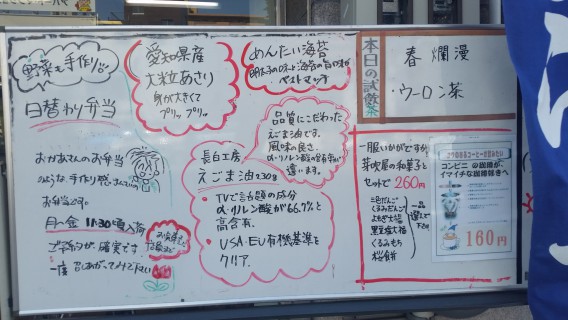 野菜も手作り!!
日替わり弁当
おかあさんのお弁当
のような手作り感まんさいの
お弁当です。
月〜金 11:30頃入荷
ご予約が確実です
一度 召しあがってみて下さい
愛知県産
大粒あさり
身が大きくて
プリッ プリッ
めんたい海苔
ベストマッチ
品質にこだわった
えごま油です。
風味の良さ、
違います。
長白工房
えごま油230g
・TVで話題の成分
α-リノレン酸が66.7%と
高含有.
・USA・EU有機基準を
クリア.
本日の試飲茶
春爛漫
ウーロン茶
一服いかがですか
茶吹屋の和菓子と
セットで260円
くるみだんご
よもぎ大福
黒豆塩大福
くるみもち
桜食餅
一品
選んで
下さい
コンビニの珈琲が、
イマイチな珈琲好きへ
160円